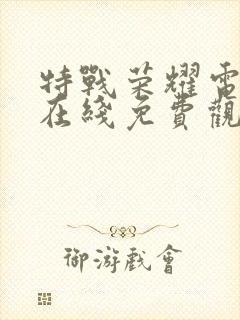 特戰荣耀電
在綫免費觀
御游戲會